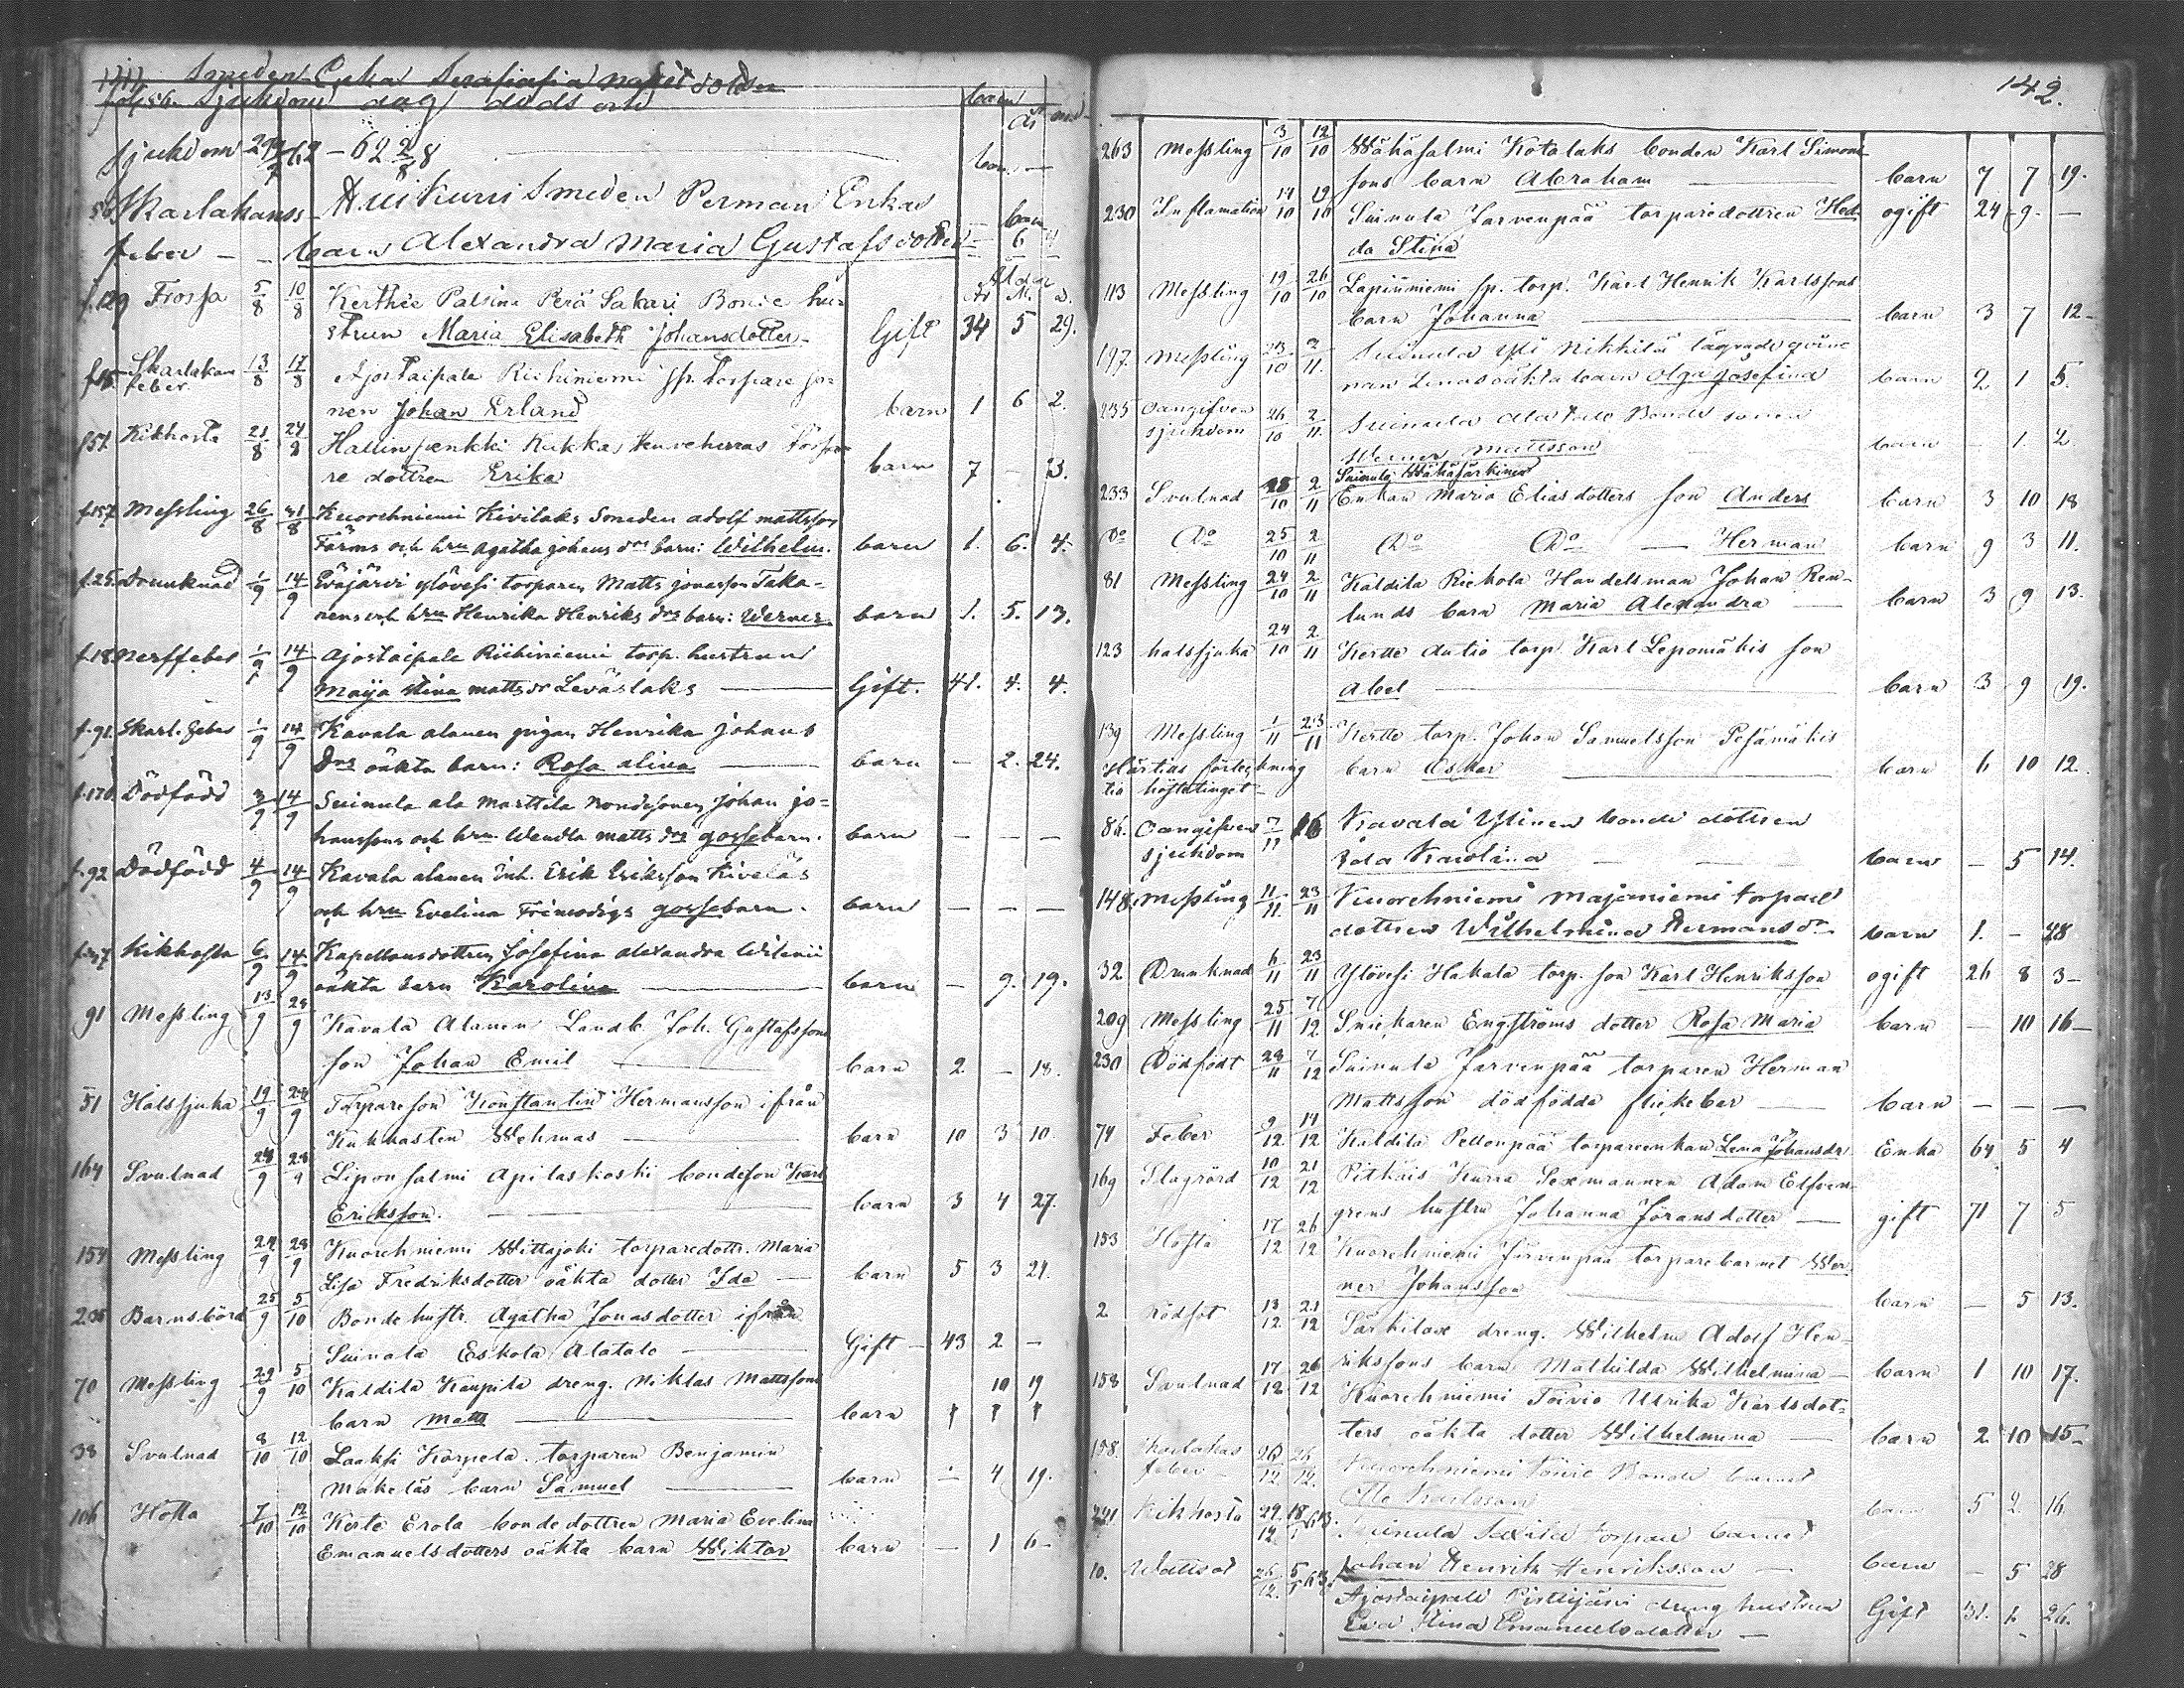 barn
sjukdom dag döds om
Sjukdom 29/7 62 - 62 2/8
Skarlakans Smeden Perman Enkas
feber barn Alexandra Maria Gustafsdotter barn 6
Ålder
f.129 Frossa 5/8 10/8 Kerthée Palsina Perä Sakari Bonde hu-
strun Maria Elisabeth Johansdotter Gift 34 5 29.
Skarlakans feber 13/8 17/8 Ajostaipale Riihiniemi sp. Torpare so-
nen Johan Erland barn 1 6 2.
f51 Kikhosta 21/8 24/8 Hallinpenkki Kukkas
re dottren Erika barn 7 - 3.
f.157 Messling 26/8 31/8 Kuorehniemi Kivilaks Smeden Adolf Mattsson
Färms och hru Agatha Johans drs barn: Wilhelm. barn 1. 6. 4.
f.25. Drunknad 1/9 14/9 Eväjärvi Ylövesi torparen Matts Jonasson Taka-
nens och hru Henrika Henriks drs barn: Werner. barn 1. 5. 13.
f.18 Nerffeber 1/9 14/9 Ajostaipale Riihiniemi torp. hustrun
Maija Stina Matts dr Leväslaks Gift. 41. 4. 4.
f.91. Skarl. feber 1/9 14/9 Kavala Alanen pigan Henrika Johans
Drs oäkta barn: Rosa Alina barn - 2. 24.
f.170 Dödfödd 3/9 14/9 Suinula Ala Marttila Bondesonen Johan Jo-
hanssons och hru Wendla Matts drs gossebarn. barn - - -
f.92 Dödfödd 4/9 14/9 Kavala Alanen Inh. Erik Eriksson Kiveläs
och hru Evelina gossebarn. barn - - -
Kikhosta 6/9 14/9 Kapellansdottren Josefina Alexandra
oäkta barn Karolina barn - 9. 19.
91 Messling 13/9 28/9 Kavala Alanen Landb. Joh. Gustafssons
son Johan Emil barn 2 - 18.
51 Halssjuka 19/9 28/9 Torpareson Konstantin Hermansson ifrån
Kukkasten Wehmas barn 10 3 10
164 Svulnad 28/9 28/9 Liponsalmi Apilaskoski bondeson Karl
Ericksson. barn 3 4 27.
154 Messling 24/9 28/9 Kuorehniemi Wittajoki torparedottr. Maria
Lisa Fredriksdotter oäkta dotter Ida barn 5 3 21.
Barnsbörd 25/9 5/10 Bonde hustr. Agatha Jonasdotter ifrån
Suinula Eskola Alatalo Gift 43 2 -
70 Messling 29/9 5/10 Kaldila Kaupila dreng. Niklas Mattssons 10 19
barn Matts barn
38 Svulnad 8/10 12/10 Laaksi Korpela torparen Benjamin
Makeläs barn Samuel barn - 4 19.
106 Hosta 7/10 12/10 Kerte Erola bondedottren Maria Evelina
Emanuelsdotters oäkta barn Wiktor barn - 1 6-
142.
263 Messling 3/10 12/10 Wähäsalmi Kotalaks bonden Karl Simons-
sons barn Abraham barn 7 7 19.
230 Inflamation 14/10 19/10 Suinula Jarvenpää torparedottren Hed- ogift 24 9. -
da Stina
113 Messling 19/10 26/10 Lapinniemi sp. torp. Karl Henrik Karlssons
barn Johanna barn 3 7 12-
197. Messling 23/10 2/11. Suinula Yli Nikkilä qvinc
nan Lenas oäkta barn Olga Josefina barn 2 1 5.
235 Oangifven sjukdom 26/10 2/11. Suinula Ala Bonde sonen
Werner Mattsson barn - 1 2
Suinula Wähäsärkinen
233 Svulnad 28/10 2/11 Enkan Maria Eliasdotters son Anders barn 3 10 18
Do Do 25/10 2/11 Do Do Herman barn 9 3 11.
81 Messling 24/10 2/11 Kaldila Riekola Handelsman Johan Ren-
lunds barn Maria Alexandra barn 3 9 13.
123 halssjuka 24/10 2/11 Kertte Autio torp. Karl Lepomäkis son
Abel barn 3 9 19.
139 Messling 1/11 23/11 Kertte torp. Johan Samuelsson Pesämäkis
barn Oskar barn 6 10 12.
Härtills förteckning
till höstetinget-
86. Oangifven sjukdom 7/11 16 Kavala Ylinen bonde dottren
Ida Karolina barn - 5 14.
148. Messling 11/11. 23/11 Kuorehniemi Majaniemi torpare
dottren Wilhelmina Hermansdr barn 1. - 28
32 Drunknad 6/11 23/11 Ylövesi Hakala torp. son Karl Henriksson ogift 26 8 3-
209 Messling 25/11 7/12 Snickaren Engströms dotter Rosa Maria barn - 10 16-
230 Dödfödt 28/11 7/12 Suinula Jarvenpää torparen Herman
Mattsson dödfödda flickebar barn - - -
74 Feber 9/12 14/12 Kaldila Pellonpää torpareenkan Lena Johansdr. Enka 64 5 4
169 Slagrörd 10/12 21/12 Pitkäis Kuria Sexmannen Adam Elfven-
grens hustru Johanna Jöransdotter gift 71 7 5
153 Hosta 17/12 26/12 Kuorehniemi Järvenpää torparebarnet Wer-
ner Johansson barn - 5 13.
2 rödsot 13/12 21/12 Särkilax dreng. Wilhelm Adolf Hen-
rikssons barn Mathilda Wilhelmina barn 1 10 17.
158 Svulnad 17/12 26/12 Kuorehniemi Toivio Ulrika Karlsdot-
ters oäkta dotter Wilhelmina barn 2 10 15-
158. Skarlakas feber 20/12 26/12. Kuorehniemi Toivio Bonde barnet
Otto Karlsson barn 5 2 16.
221 Kikhosta 29/12 18/1 63. Suinula torpare barnet
Johan Henrik Henriksson barn - 5 28
10. Wattsot 26/12. 5/1 63. Ajostaipale dreng hustrun
Eva Stina Emanuelsdotter Gift 31. 1. 26.